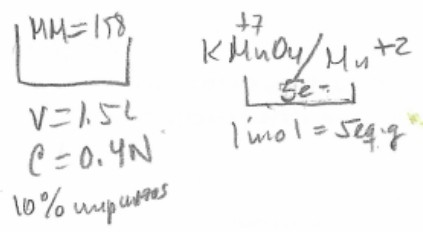 MM=158
V=1.5L
C=0.4N
10% impurezas
+7
KMnO4/Mn+2
5e-
1mol=5eq.g